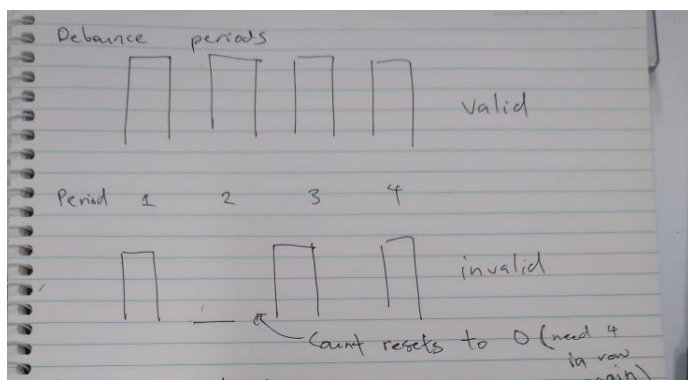 Debounce periods
valid
Period 1 2 3 4
invalid
Count resets to 0 (need 4
in row
again)